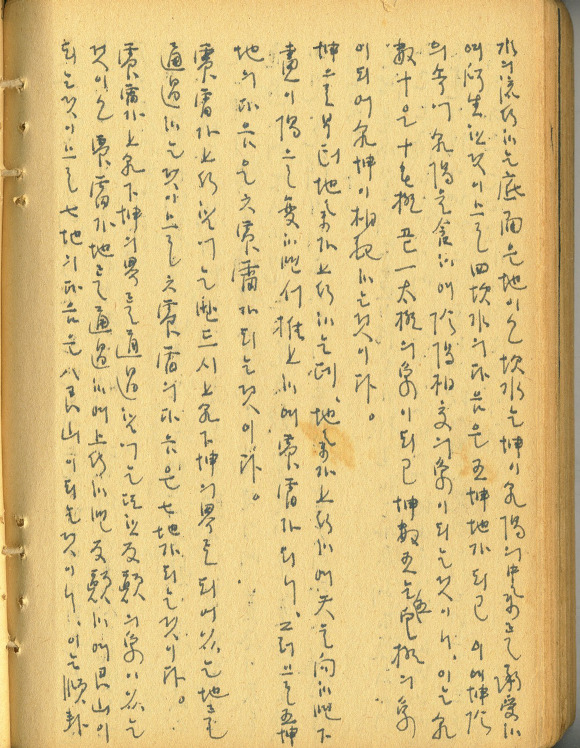 水의 流行하는 底面은 地이오 坎水는 坤이 乳陽의 中氣를 受하
여 行生한 것이므로 四坎水의 다음은 五坤地가 되고 이에 坤陰
의 속에 乾陽을 含하여 陰陽相交의 象이 되는 것이니, 이는 乾
數十은 十無極 곧 一太極의 象이 되고 坤數五는 五皇極의 象
이 되여 乾坤이 相配하는 것이다.
坤으로부터 地氣가 上行하는데, 地氣가 上行하여 天을 向하면 下
畫이 陽으로 變하면서 推上하여 震雷가 되니, 그러므로 五坤
地의 다음은 六震雷가 되는 것이다.
震雷가 上行함에는 반드시 上乾下坤의 界로 되어있는 地를
通過하는 것이므로 六震雷의 다음은 七地가 되는 것이다.
震雷가 上乾下坤의 界를 通過함에는 또한 反顚의 象이 있는
것이오 震雷가 地를 通過하여 上行하면 反顚하여 艮山이
되는 것이므로 七地의 다음은 八艮山이 되는 것이니, 이는 順卦